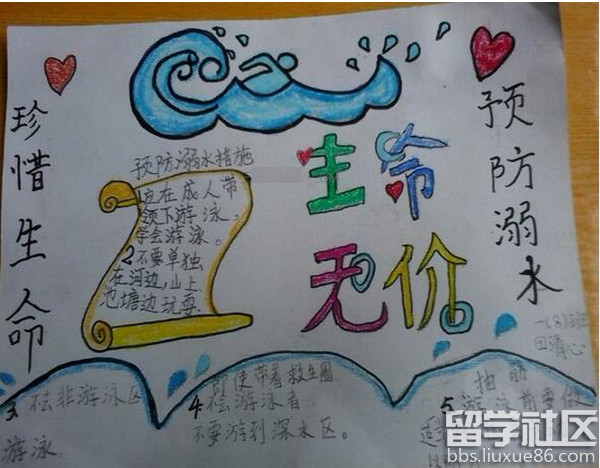 珍惜生命
预防溺水
生命
无价
预防溺水措施
应在成人带
领下游泳.
学会游泳。
2不要单独
在河边,山上
池塘边玩耍
一(8)班
3
不去非游泳区
游泳.
即使带着救生圈
4
去游泳者
不要游到深水区。
抽筋
5
留学社区
bbs.liuxue86.com